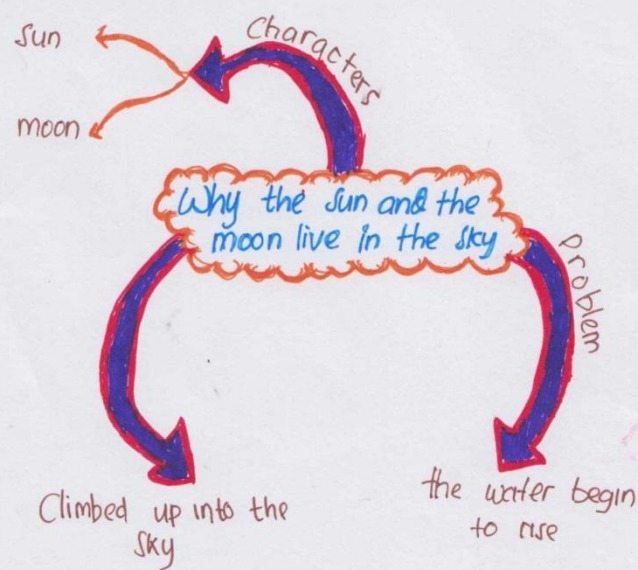 Characters
sun
moon
Why the sun and the
moon live in the sky
problem
Climbed up into the
sky
the water begin
to rise